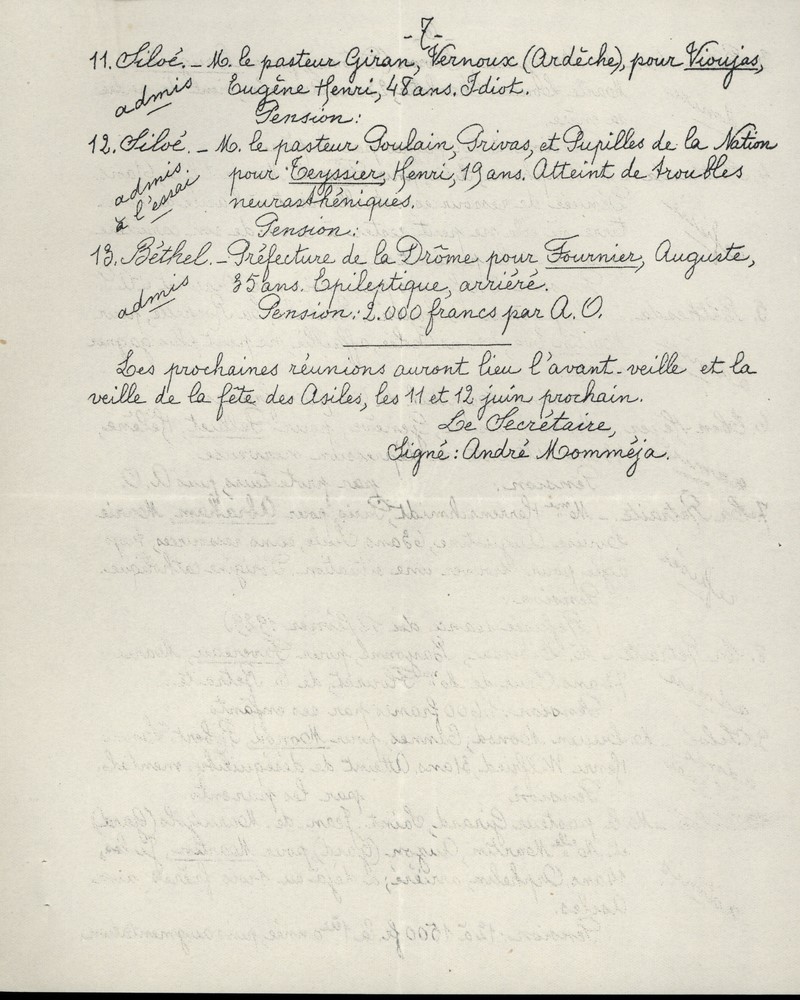 - 7 -
11. Siloé. - M. le pasteur Giran, Vernoux (Ardèche), pour Vioujas,
admis
Eugène Henri, 48 ans. Idiot.
Pension:
12. Siloé. - M. le pasteur Poulain, Privas, et Pupilles de la Nation
admis à l'essai
pour Teyssier, Henri, 19 ans. Atteint de troubles
neurasthéniques.
Pension:
13. Béthel. - Préfecture de la Drôme pour Fournier, Auguste,
admis
35 ans. Epileptique, arriéré.
Pension: 2.000 francs par A. O.
Les prochaines réunions auront lieu l'avant-veille et la
veille de la fête des Asiles, les 11 et 12 juin prochain.
Le Secrétaire,
Signé: André Momméja.